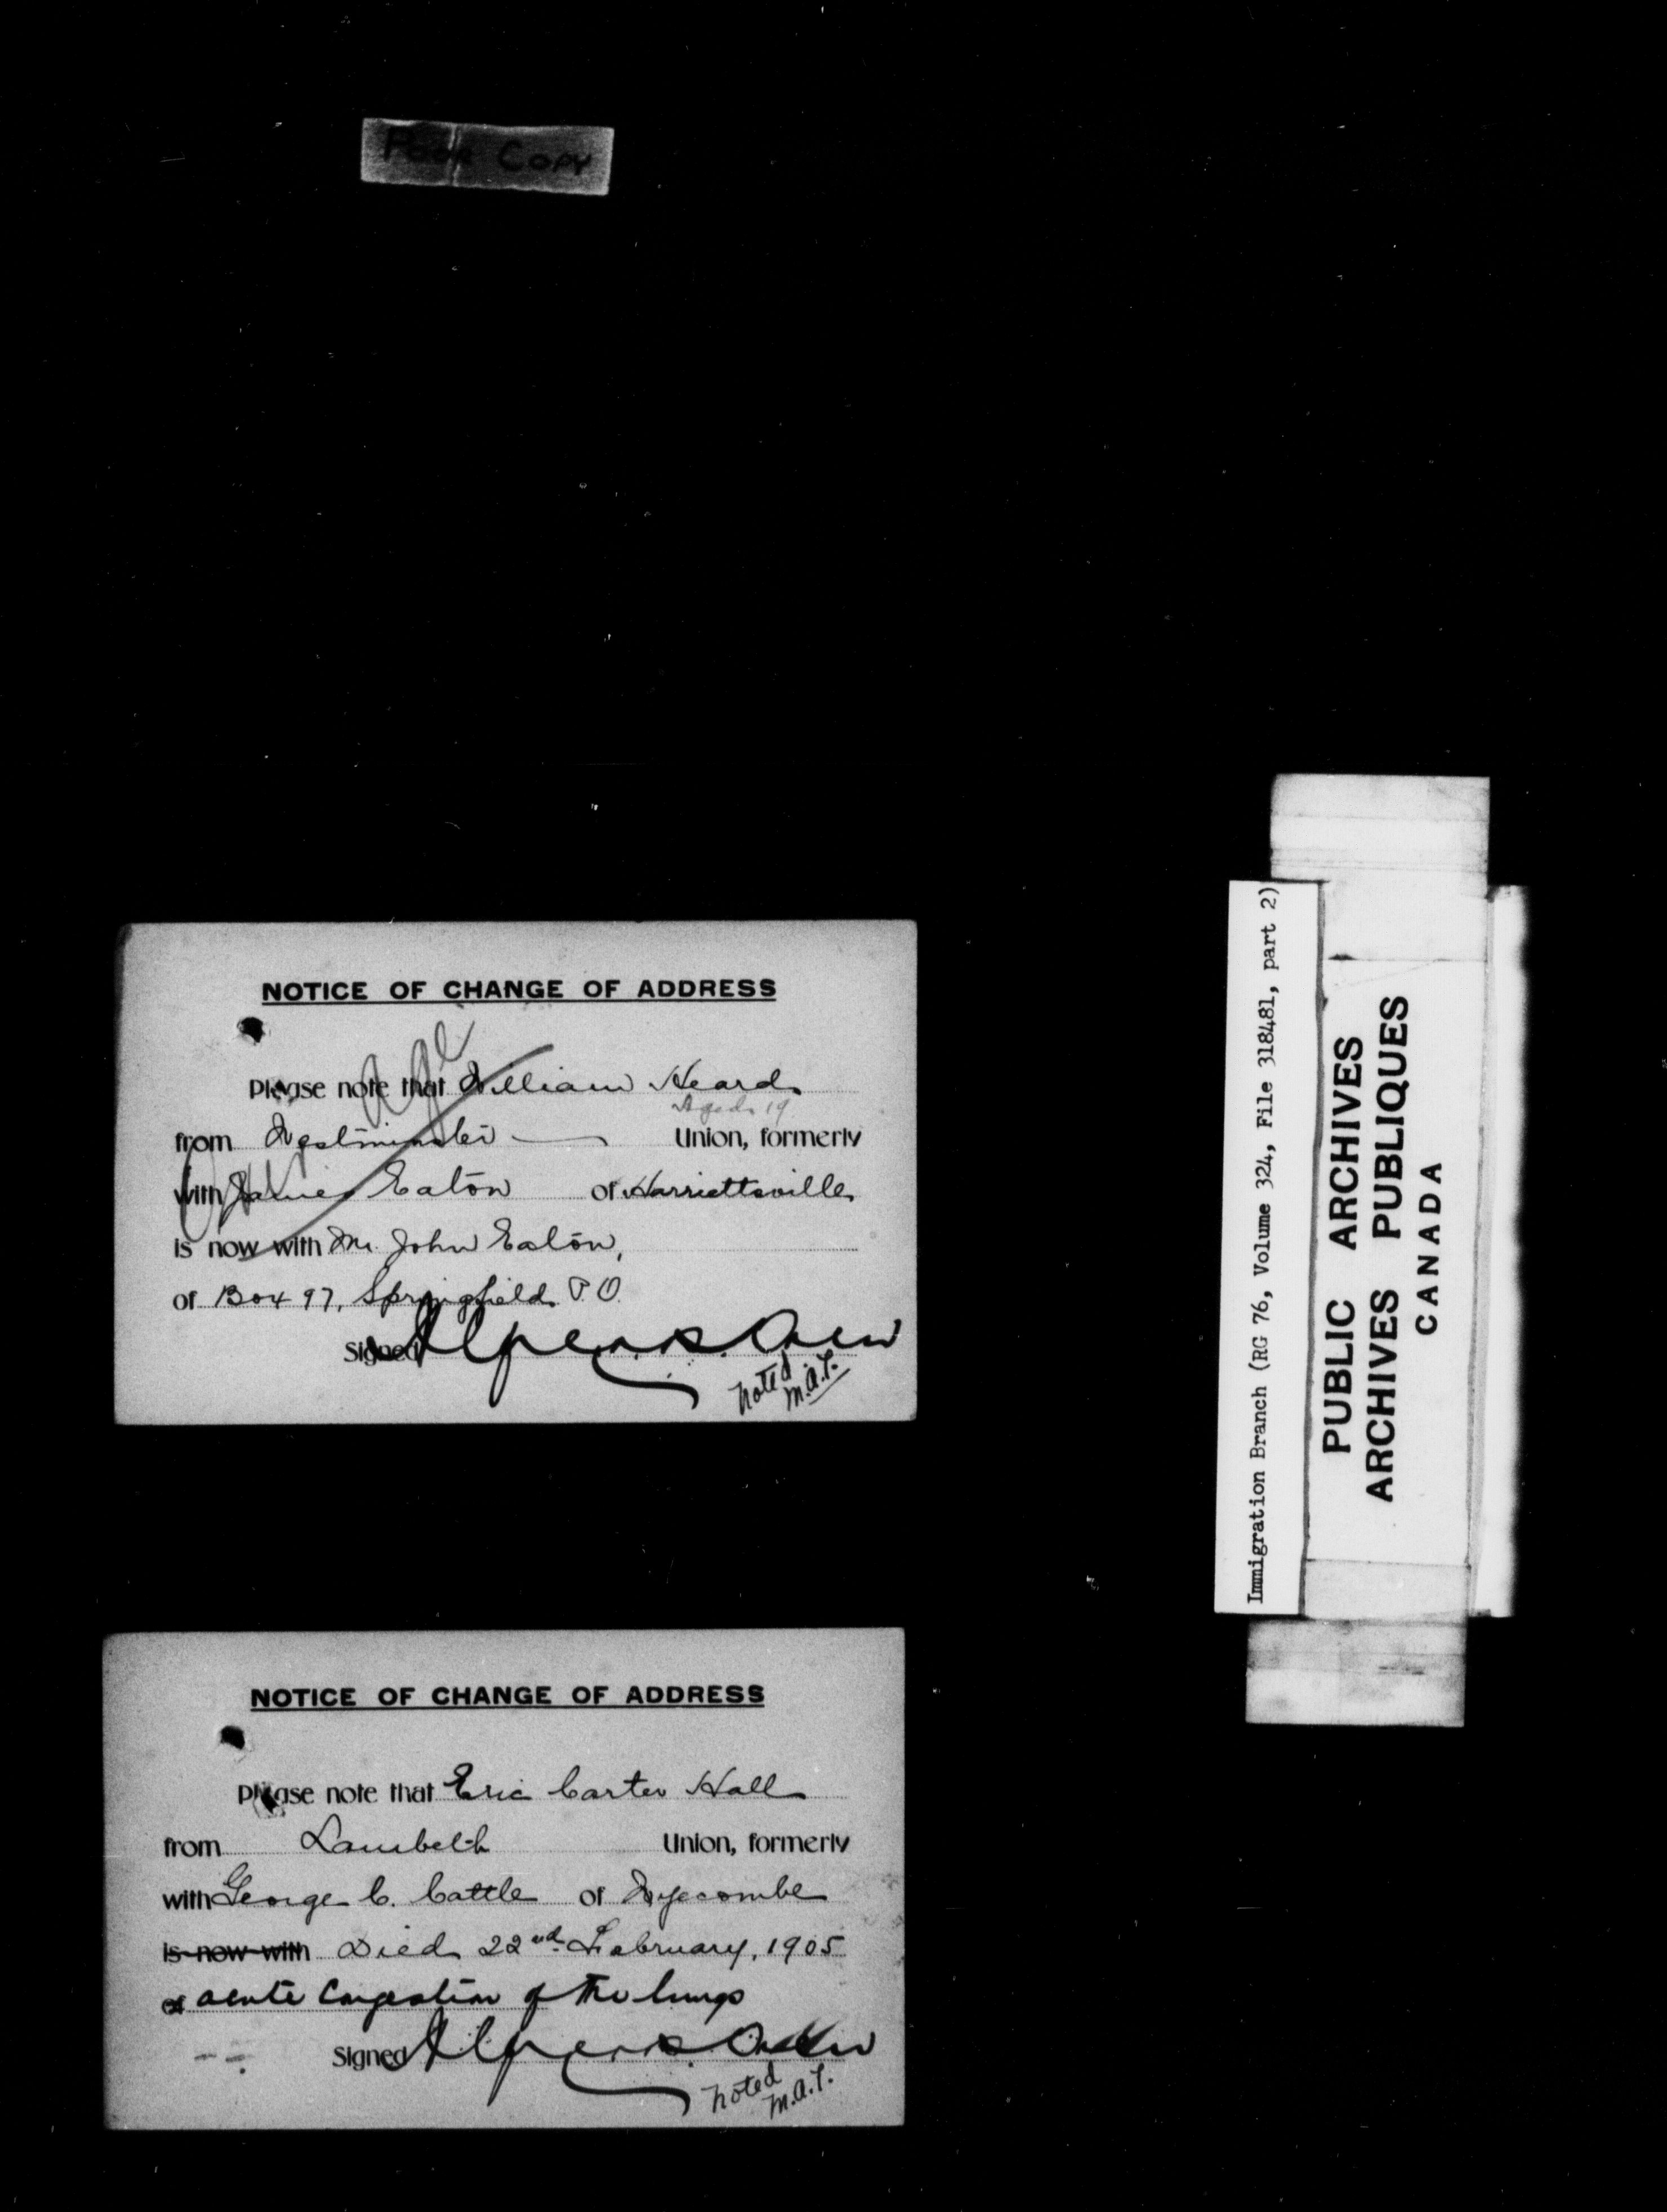 Poor Copy
NOTICE OF CHANGE OF ADDRESS
Please note that William Heard
Aged 19
from Westminster Union, formerly
with James Eaton of Harriettsville
is now with Mr. John Eaton,
of Box 97, Springfield P.O.
Signed
Noted
M.A.T.
NOTICE OF CHANGE OF ADDRESS
Please note that Eric Carter Hall
from Lambeth Union, formerly
with George C. Cattle of Wyecombe
is now with Died 22nd February, 1905
of acute Congestion of the lungs
Signed
Noted
M.A.T.
Immigration Branch (RG 76, Volume 324, File 318481, part 2)
PUBLIC ARCHIVES
ARCHIVES PUBLIQUES
CANADA